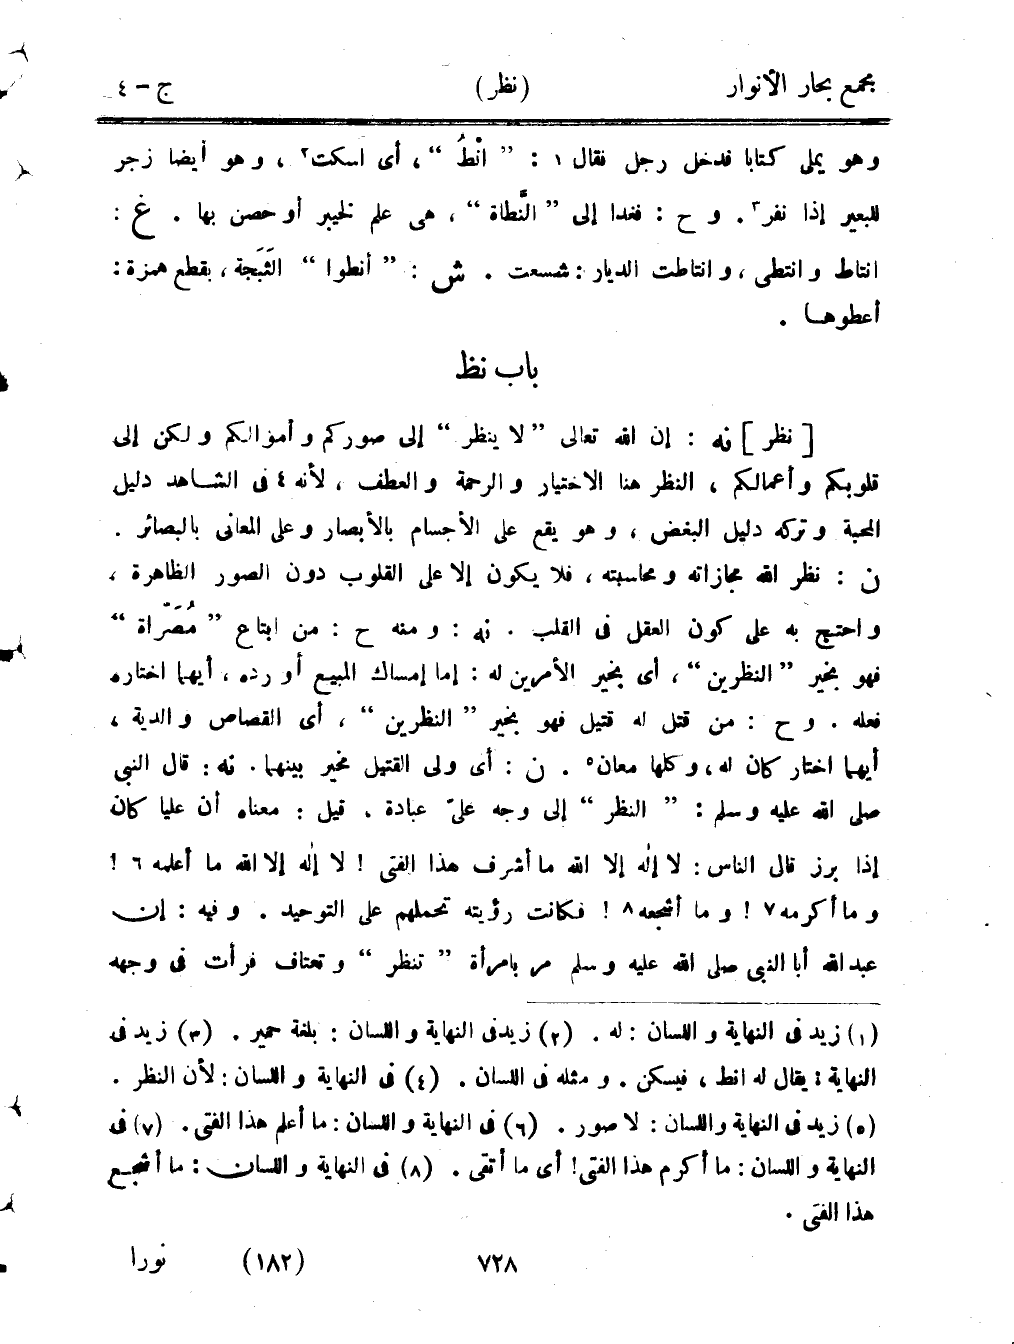 مجمع بحار الأنوار (نظر) ج – ٤
وهو يملى كتابا فدخل رجل فقال ١ : ” انْطُ “ ، أى اسكت٢ ، و هو أيضا زجر
للبعير إذا نفر٣ . و ح : فغدا إلى ” النَّطاة “ ، هى علم لخيبر أو حصن بها . غ :
انتاط و انتطى ، و انتاطت الديار : شسعت . ش : ” أنطوا “ الثَبَجة ، بقطع همزة :
أعطوهـا .
باب نظ
[ نظر ] نه : إن الله تعالى ” لا ينظر “ إلى صوركم و أموالكم و لكن إلى
قلوبكم و أعمالكم ، النظر هنا الاختيار و الرحمة و العطف ، لأنه ٤ فى الشاهد دليل
المحبة و تركه دليل البغض ، و هو يقع على الأجسام بالأبصار و على المعانى بالبصائر .
ن : نظر الله مجازاته و محاسبته ، فلا يكون إلا على القلوب دون الصور الظاهرة ،
و احتج به على كون العقل فى القلب . نه : و منه ح : من ابتاع ” مُصَرّاة “
فهو بخير ” النظرين “ ، أى بخير الأمرين له : إما إمساك المبيع أو رده ، أيهما اختاره
فعله . و ح : من قتل له قتيل فهو بخير ” النظرين “ ، أى القصاص و الدية ،
أيهما اختار كان له ، و كلها معان٥ . ن : أى ولى القتيل مخير بينهما . نه : قال النبي
صلى الله عليه و سلم : ” النظر “ إلى وجه علىّ عبادة . قيل : معناه أن عليا كان
إذا برز قال الناس : لا إله إلا الله ما أشرف هذا الفتى ! لا إله إلا الله ما أعلمه ٦ !
و ما أكرمه ٧ ! و ما أشجعه ٨ ! فكانت رؤيته تحملهم على التوحيد . و فيه : إن
عبد الله أبا النبي صلى الله عليه و سلم مر بامرأة ” تنظر “ و تعتاف فرأت فى وجهه
(١) زيد فى النهاية و اللسان : له . (٢) زيد فى النهاية و اللسان : بلغة حمير . (٣) زيد فى
النهاية : يقال له انط ، فيسكن . و مثله فى اللسان . (٤) فى النهاية و اللسان : لأن النظر .
(٥) زيد فى النهاية واللسان : لا صور . (٦) فى النهاية و اللسان : ما أعلم هذا الفتى . (٧) فى
النهاية و اللسان : ما أكرم هذا الفتى ! أى ما أتقى . (٨) فى النهاية و اللسان : ما أشجع
هذا الفتى .
٧٢٨ (١٨٢) نورا